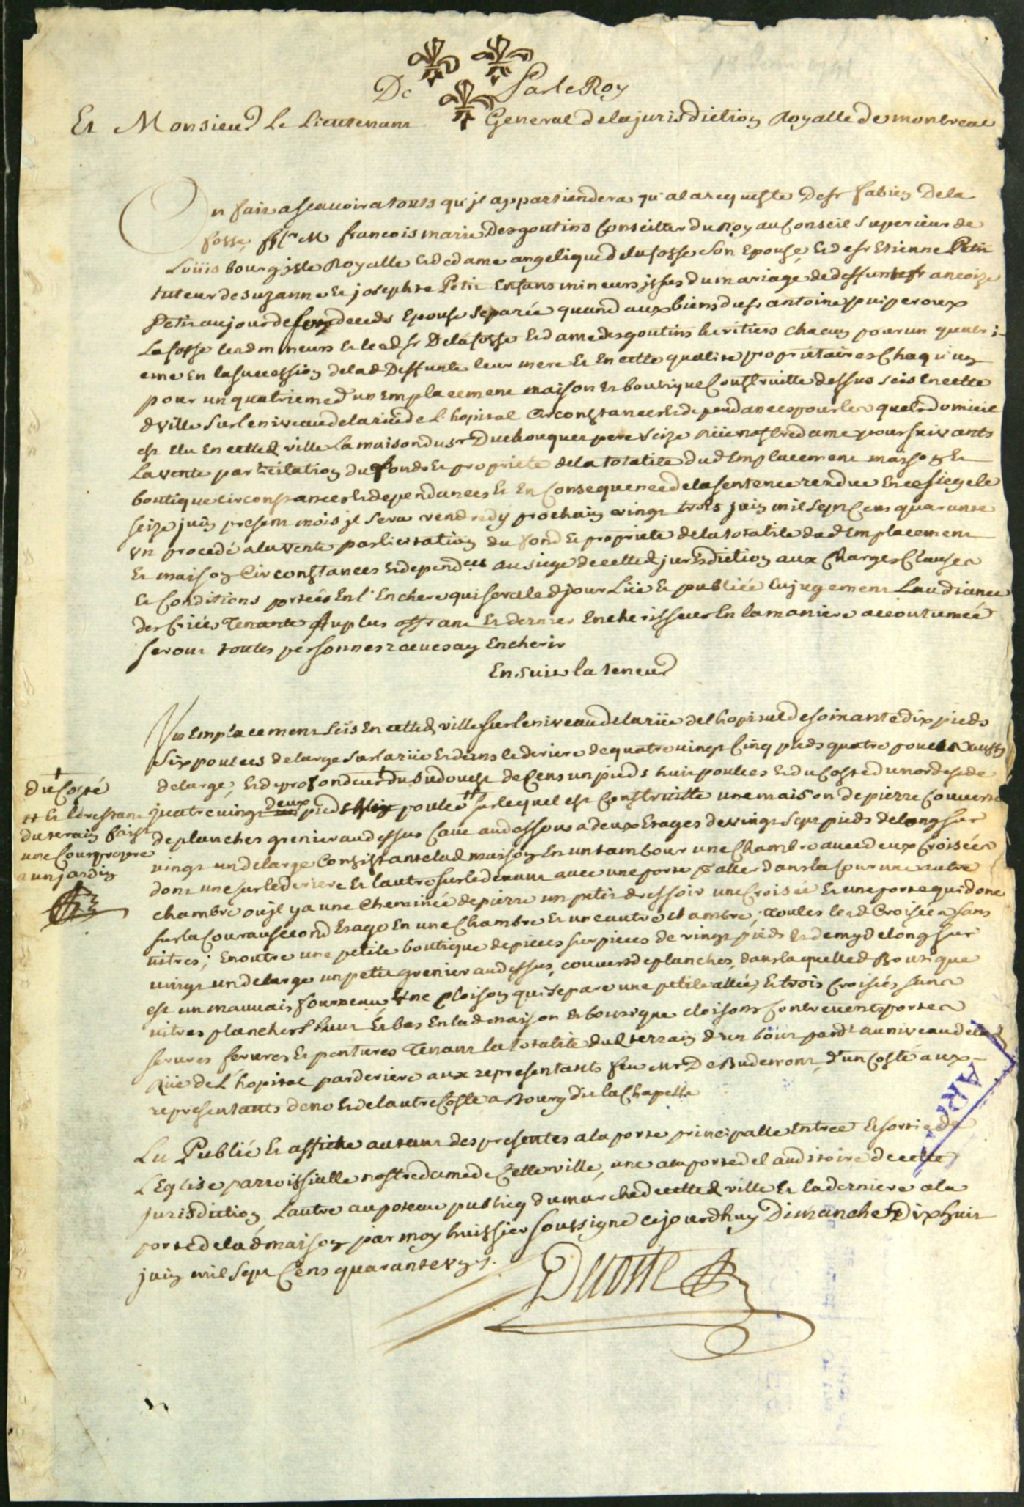 De Par le Roy
Et Monsieur Le Lieutenant General de la jurisdiction Royalle de montreal
On fait a scavoir a touts qu'jl appartiendera qu'a la requeste de sr fabien De la
fosse, francois marie Desgoutins Conseiller du Roy au Conseil Superieur de
Loüis bourg isle Royalle et de dame angelique delafosse son Epouse, et de sr Etienne Petit
tuteur de suzanne et joseph te Petit Enfans mineurs jssus du mariage de deffunte francoize
Petit au jour de son deceds Epouse separée quand aux biens du sr antoine puiperoux
La fosse lesd mineurs et led sr Delafosse et dame desgoutins heritiers chacun pour un quatri-
eme En la succession de lad Deffunte leur mere et En cette qualité propriétaires chaqu'un
pour un quatrieme d'un Emplacement maison et boutique Construitte dessus scis En cette
d ville sur le niveau de la rüe de L hopital circonstances et dependances pour les quels domicil
est Elu En cette d ville La maison du sr Duchouquet pere scize rüe nostre dame poursuivants
La vente par licitation du fonds et propriete de la totalité dud Emplacement maison et
boutique circonstances et dependances et En Consequence de la sentence rendue En ce siege le
seize juin present mois jl sera vendredy prochain vingt trois juin mil sept Cens quarante
un procedé a la vente par licitation du fond et propriete de la totalité dud Emplacement
Et maison Circonstances et dependces au siege de cette d jurisdiction aux Charges Clauses
Et Conditions portées En l'Enchere qui sera led jour Lüe et publiée Lu jugement Laudiance
des Criée Tenante Au plus offrant et dernier Encherisseur En la maniere accoutumée
seront toutes personnes receues a y Encherir
Ensuit la teneur
Un Emplacement scis En cette d ville sur le niveau de la rüe de l'hopital de soixante dix pieds
six pouces de large sur la rüe et dans le deriere de quatre vingt Cinq pieds quatre pouces aussy
de large, et de profondeur du sudouest de Cens un pieds huit pouces et du Costé du nordest de
quatre vingt deux pieds six pouces sur lequel est Construitte une maison de pierre Couverte
de planches grenier au dessus Cave au dessous a deux Etages de vingt sept pieds de long sur
vingt un de large Consistante lad maison En un tambour une Chambre avec deux Croisées
dont une sur le deriere et l'autre sur le devant avec une porte p aller dans la Cour une autre
chambre ou jl y a une Cheminée de pierre un petit dressoir une Croisée et une porte qui donne
sur la Cour au second Etage En une Chambre et une autre chambre, toutes lesd Croisées sans
vitres; En outre une petite boutique de pieces sur pieces de vingt pieds et demy de long sur
vingt un de large un petit grenier au dessus, couvert de planches, dans laquelle d Boutique
est un mauvais fourneau Une Cloison qui separe une petite allée, Et trois Croisées sans
vitres planchers haut Et bas En lad maison et boutique cloisons Contrevents portes
serures ferures et pentures Tenant la totalité dud terrain d'un bout par devt au niveau de lad
Rüe de L hopital par deriere aux representants feu mr De Budemont, d'un Costé aux
representants deno et de l autre Costé a Bourg dit la Chapelle
du Costé
et le restant
du terain fait
une Cour propre
a un jardin
Lu Publié Et affiché autant des presentes a la porte principalle Entrée et sortie de
L'Eglise parroissialle nostre dame de Cette ville, une a la porte de l'auditoire de cette
jurisdiction, L'autre au poteau publicq du marché de cette d ville Et la derniere a la
porte de lad maison par moy huissier soussigné cejourdhuy Dimanche Dix huit
juin mil sept Cens quarante un
Decoste